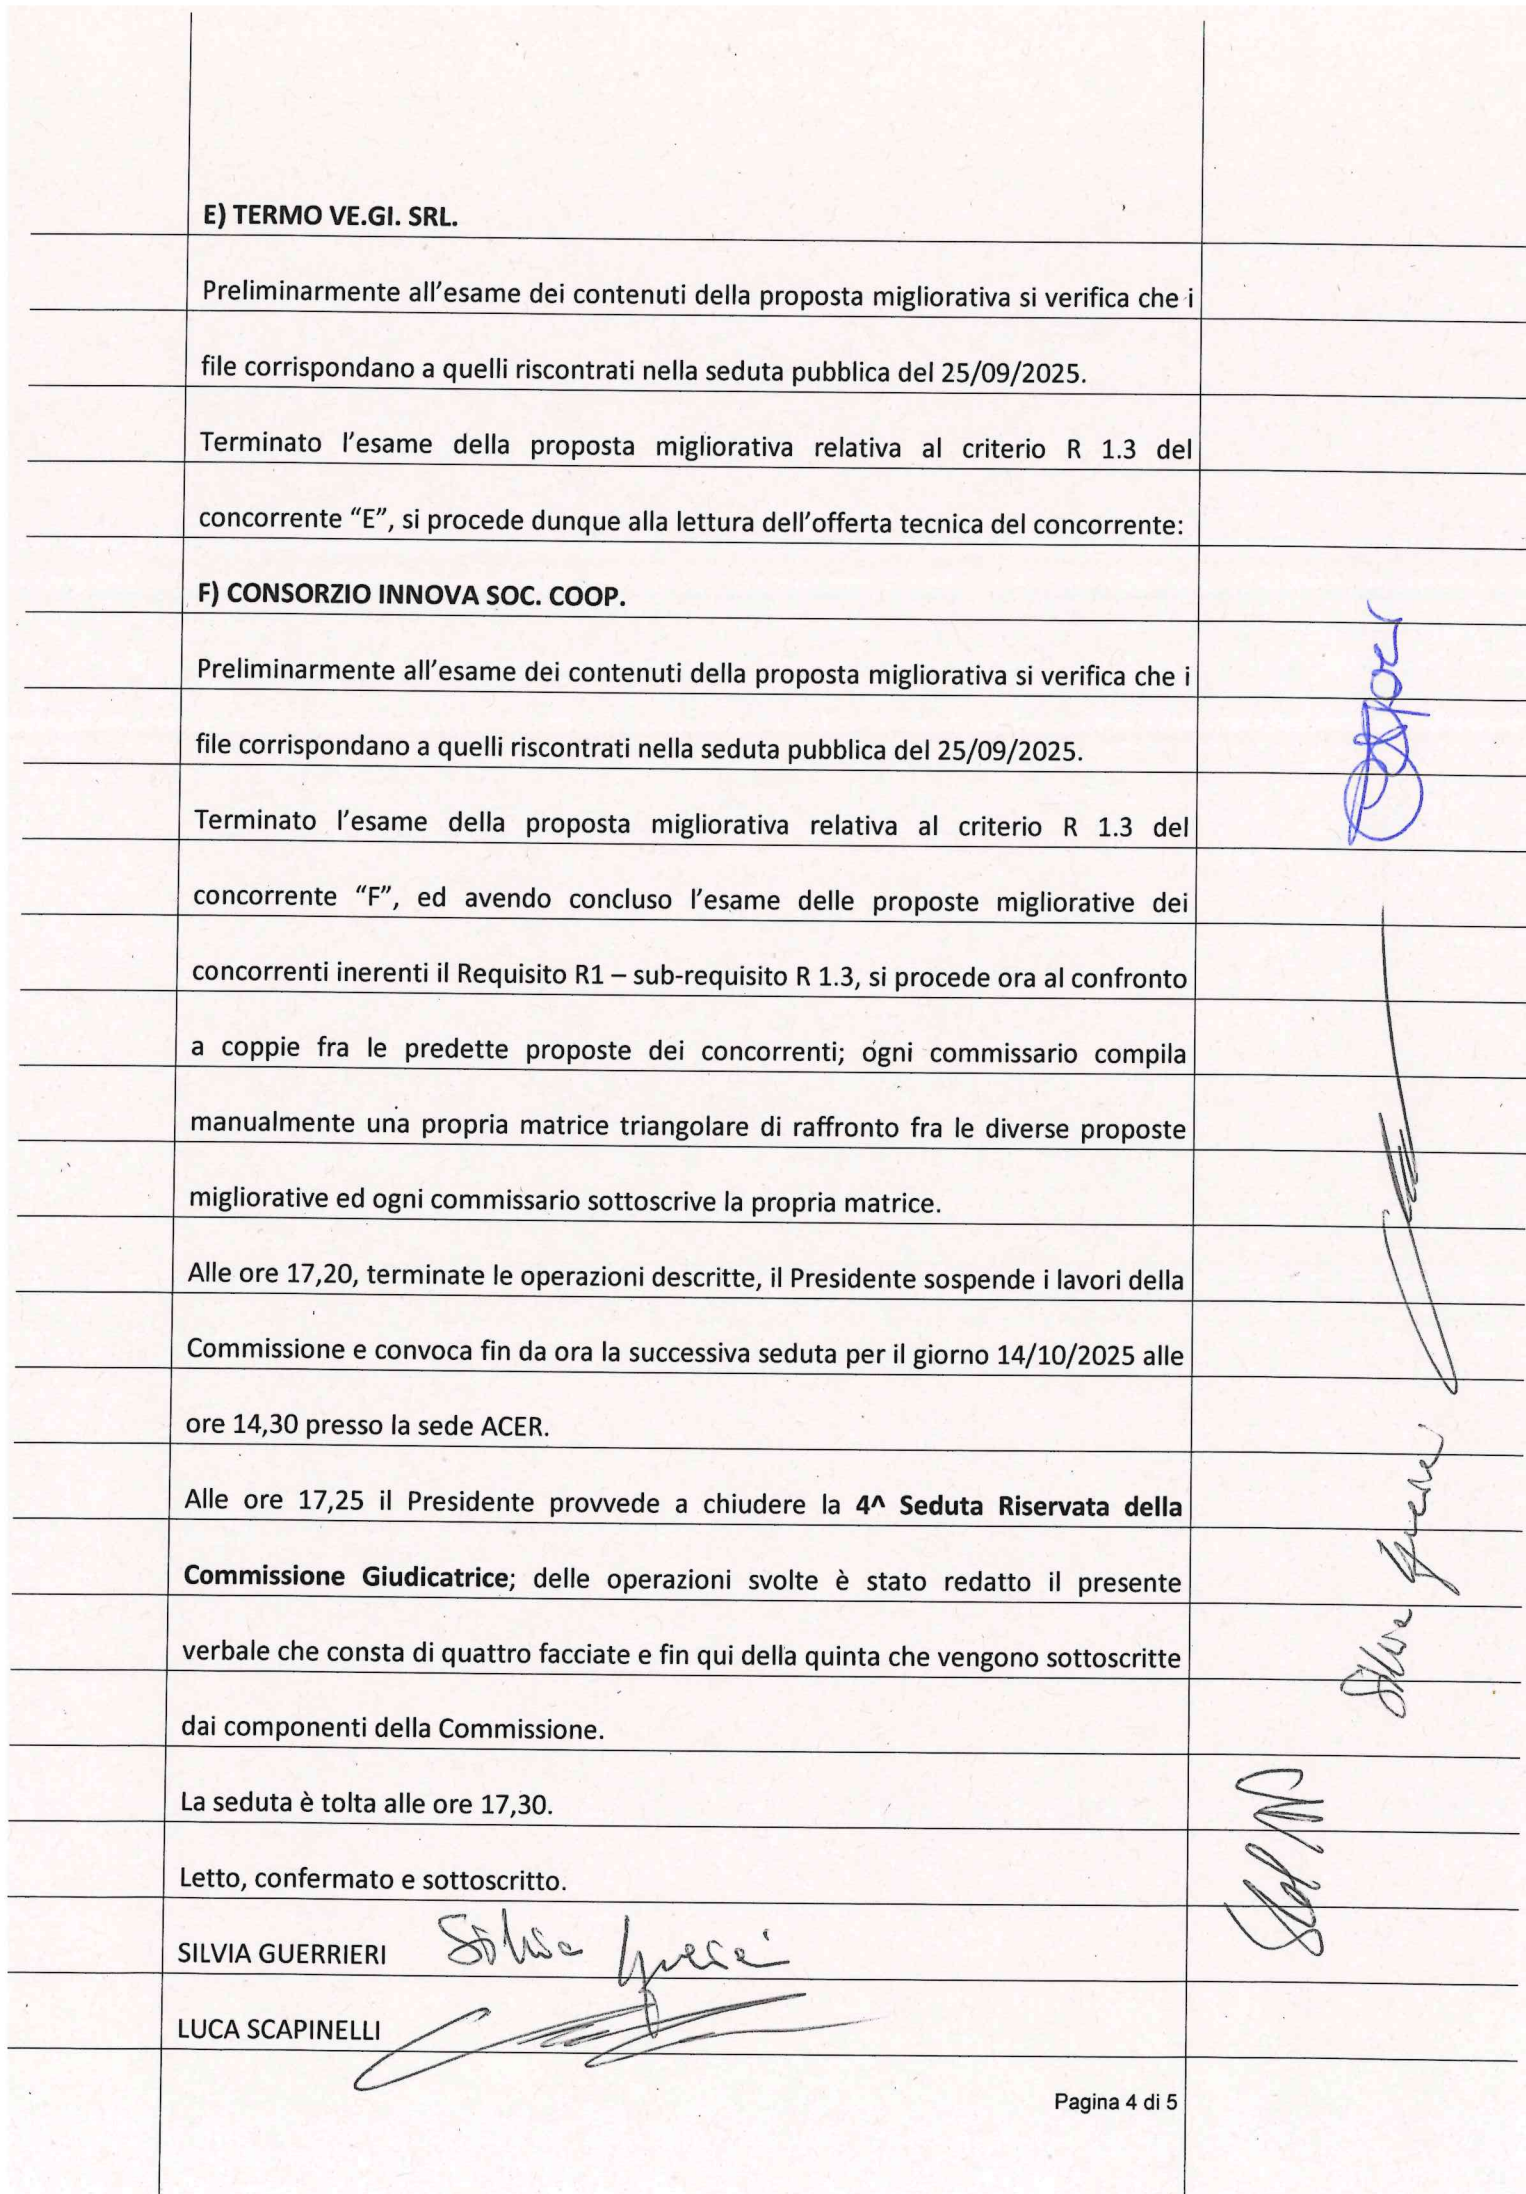 E) TERMO VE.GI. SRL.
Preliminarmente all’esame dei contenuti della proposta migliorativa si verifica che i
file corrispondano a quelli riscontrati nella seduta pubblica del 25/09/2025.
Terminato l’esame della proposta migliorativa relativa al criterio R 1.3 del
concorrente “E”, si procede dunque alla lettura dell’offerta tecnica del concorrente:
F) CONSORZIO INNOVA SOC. COOP.
Preliminarmente all’esame dei contenuti della proposta migliorativa si verifica che i
file corrispondano a quelli riscontrati nella seduta pubblica del 25/09/2025.
Terminato l’esame della proposta migliorativa relativa al criterio R 1.3 del
concorrente “F”, ed avendo concluso l’esame delle proposte migliorative dei
concorrenti inerenti il Requisito R1 – sub-requisito R 1.3, si procede ora al confronto
a coppie fra le predette proposte dei concorrenti; ogni commissario compila
manualmente una propria matrice triangolare di raffronto fra le diverse proposte
migliorative ed ogni commissario sottoscrive la propria matrice.
Alle ore 17,20, terminate le operazioni descritte, il Presidente sospende i lavori della
Commissione e convoca fin da ora la successiva seduta per il giorno 14/10/2025 alle
ore 14,30 presso la sede ACER.
Alle ore 17,25 il Presidente provvede a chiudere la 4^ Seduta Riservata della
Commissione Giudicatrice; delle operazioni svolte è stato redatto il presente
verbale che consta di quattro facciate e fin qui della quinta che vengono sottoscritte
dai componenti della Commissione.
La seduta è tolta alle ore 17,30.
Letto, confermato e sottoscritto.
SILVIA GUERRIERI Silvia
LUCA SCAPINELLI
Pagina 4 di 5
Silvia